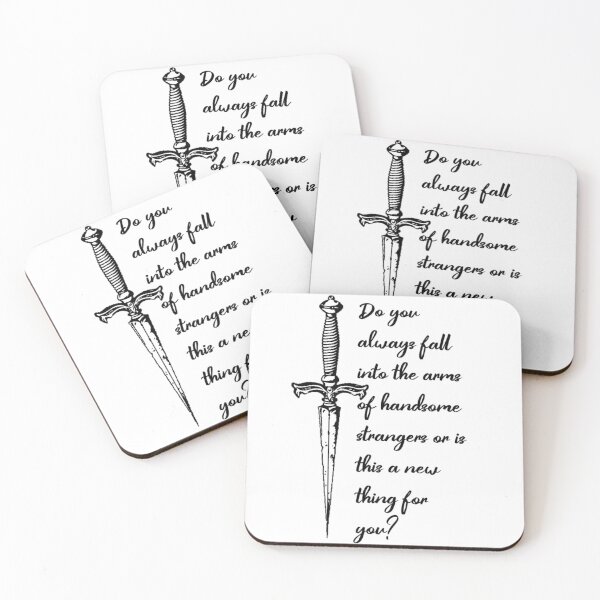 Do you
always fall
into the arms
of handsome
or is
Do you
always fall
into the arms
of handsome
strangers or is
this a new
Do you
always fall
into the arms
of handsome
strangers or is
this a ne
thing fo
you?
Do you
always fall
into the arms
of handsome
strangers or is
this a new
thing for
you?